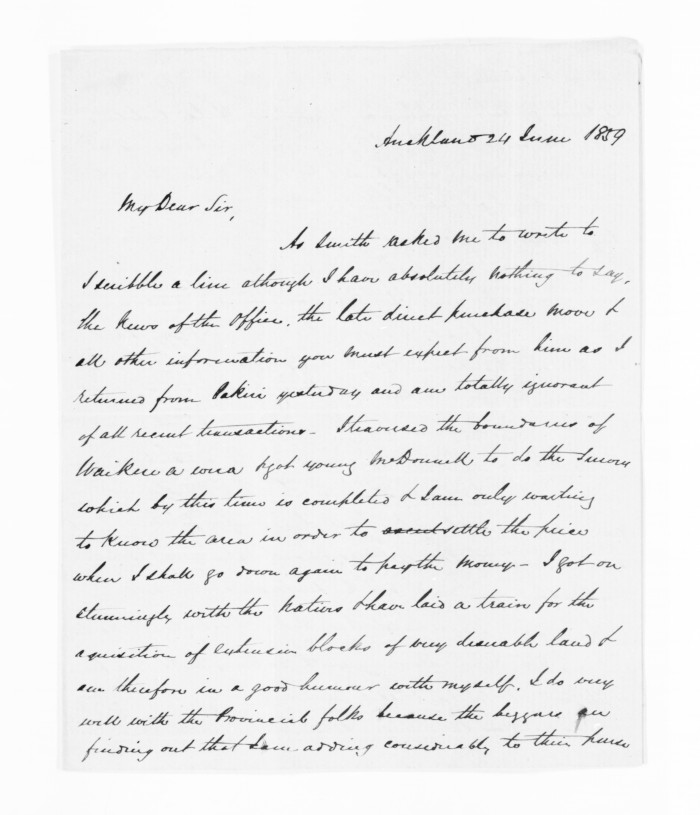 Auckland 24 June 1859
My Dear Sir,
As Smith asked me to write to
I scribble a line although I have absolutely nothing to say,
the news of the office, the late direct purchase move &
all other information you must expect from him as I
returned from Pakiri yesterday and am totally ignorant
of all recent transactions - I traversed the boundaries of
Waikeri a wera & got young McDonnell to do the survey
which by this time is completed & I am only waiting
to know the area in order to settle the price
when I shall go down again to pay the money - I got on
stunningly with the Natives & have laid a train for the
aquisition of extensive blocks of very desirable land &
am therefore in a good humour with myself. I do very
well with the Provincial folks because the beggars are
finding out that I am adding considerably to their purse